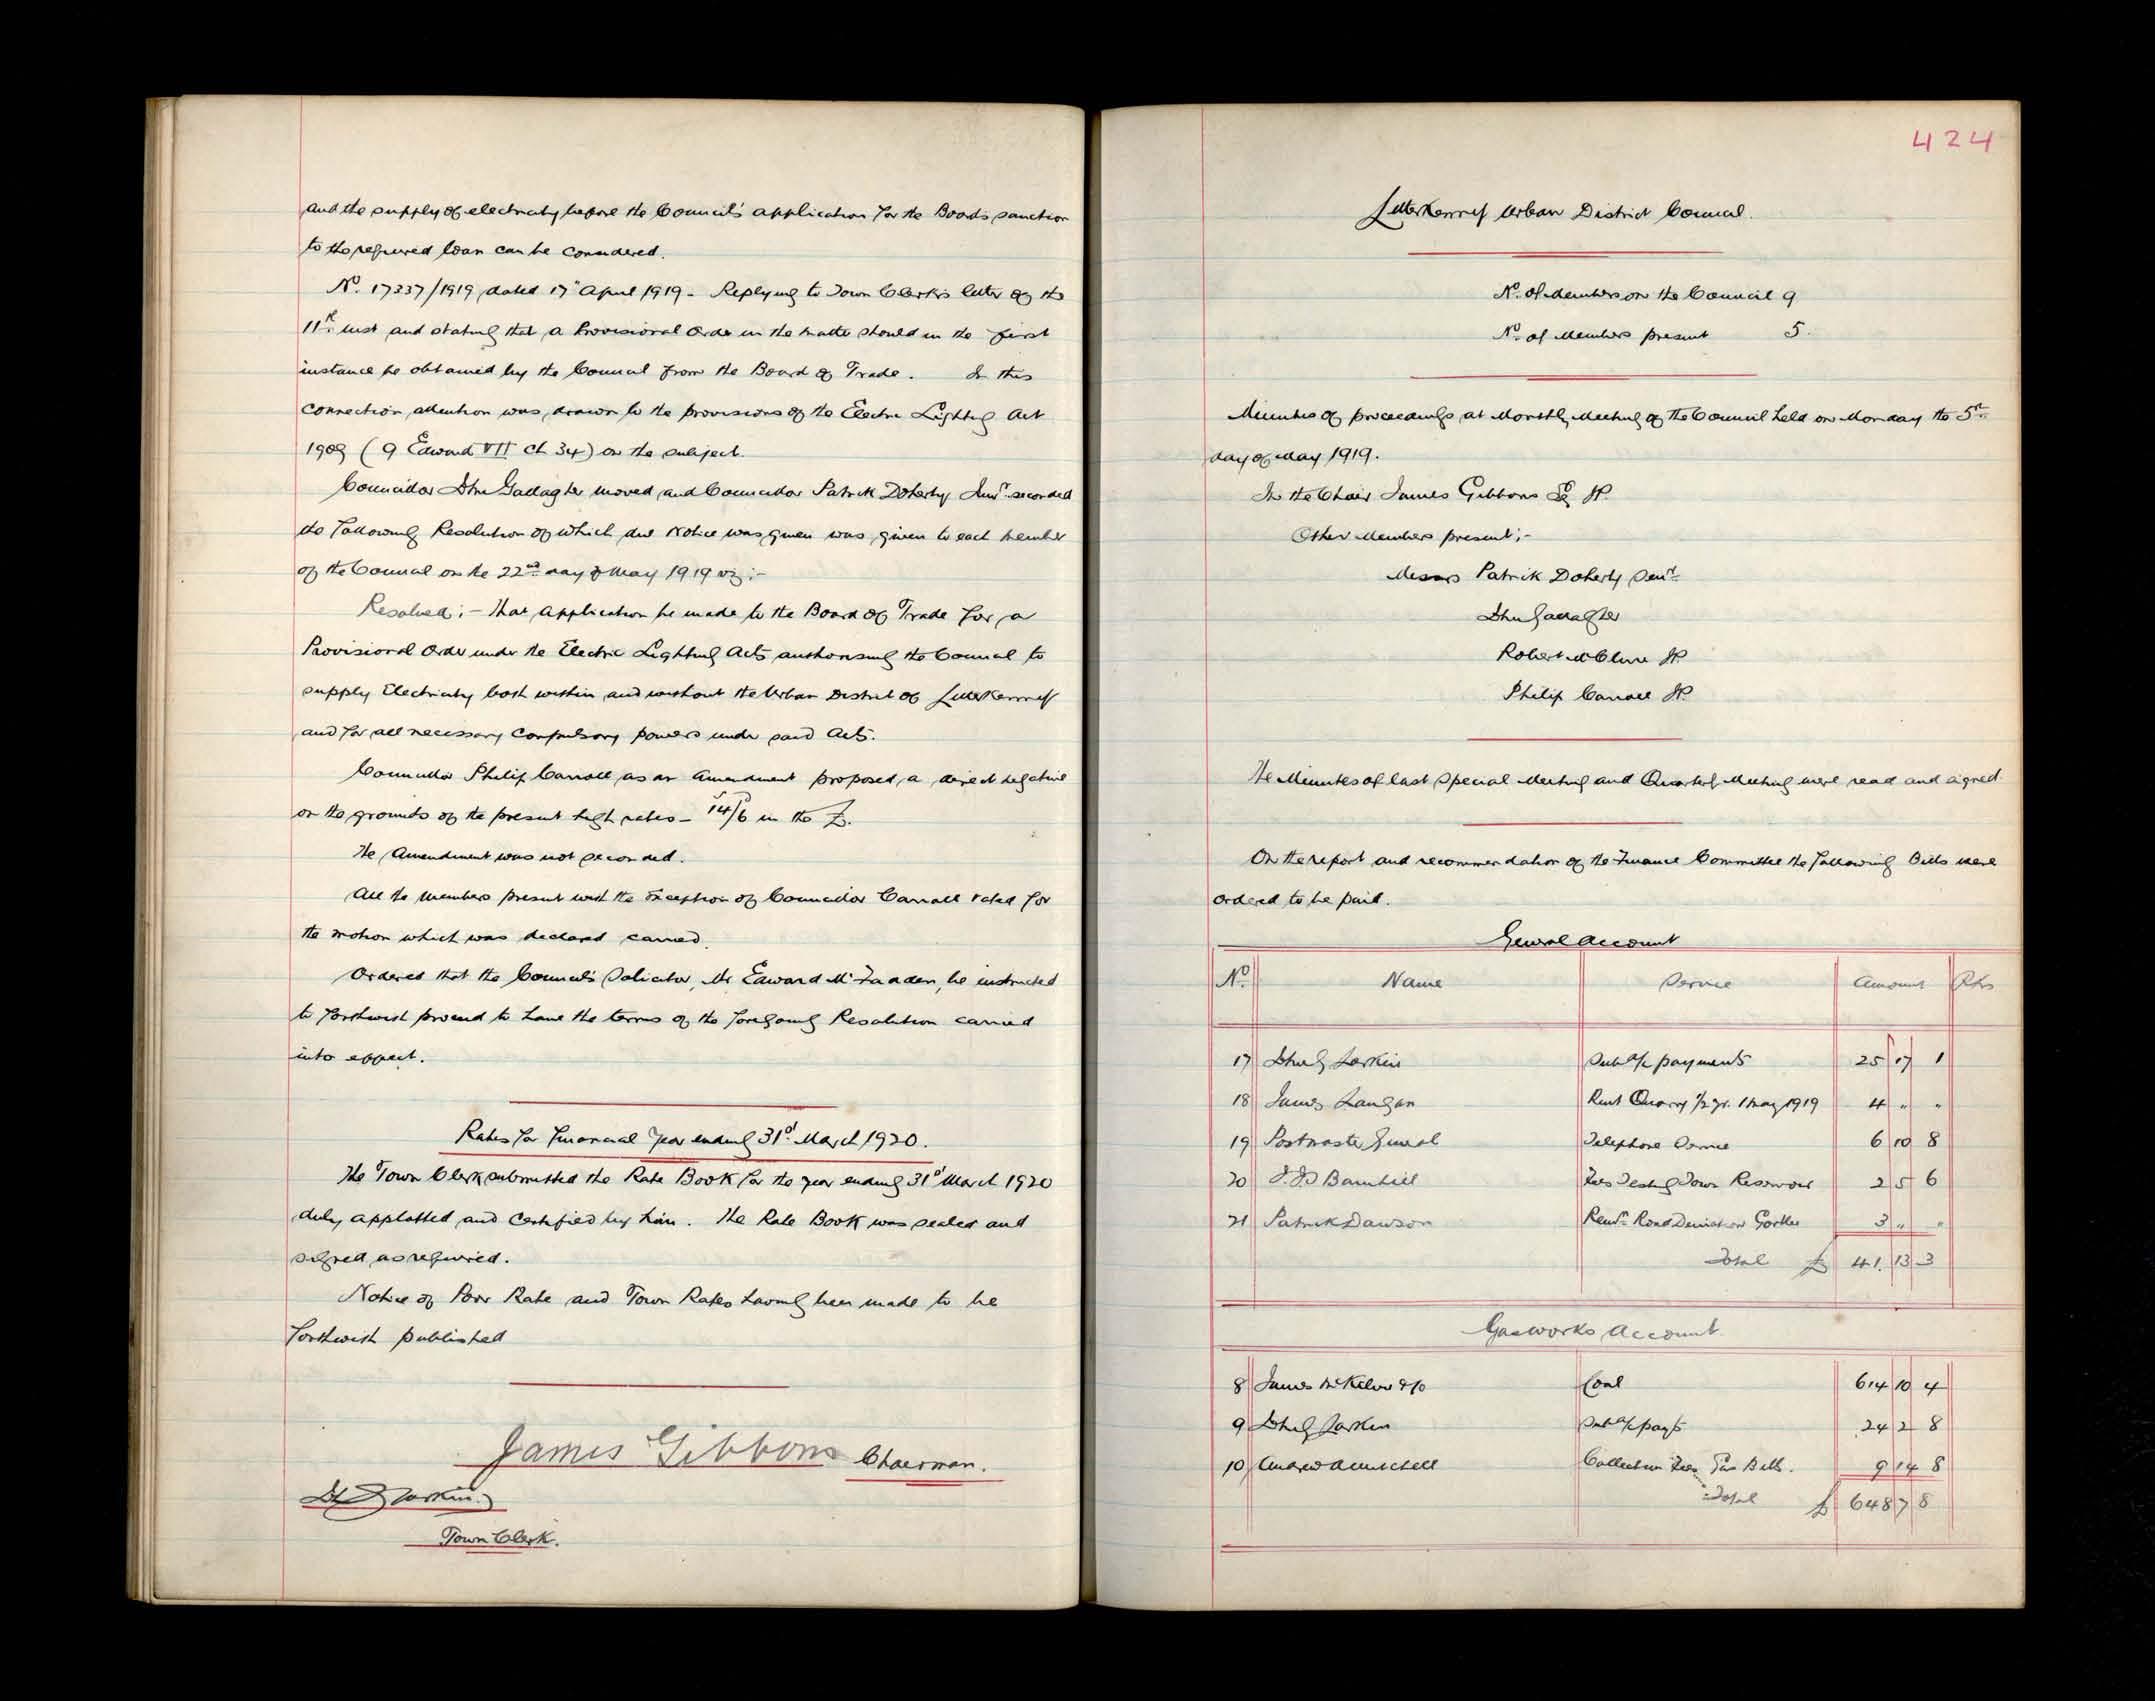 and the supply of electricity before the Council's application for the Board's sanction
to the required loan can be considered.
No. 17337/1919 dated 17th April 1919 - Replying to Town Clerk's letter of the
11th inst and stating that a Provisional Order in the matter should in the first
instance be obtained by the Council from the Board of Trade. In this
connection attention was drawn to the provisions of the Electric Lighting Act
1909 (9 Edward VII Ch 34) on the subject.
Councillor Gallagher moved and Councillor Patrick Doherty Senr. seconded
the following Resolution of which due Notice was given was given to each member
of the Council on the 22nd day of May 1919 viz:-
Resolved:- That application be made to the Board of Trade for a
Provisional Order under the Electric Lighting Acts authorising the Council to
supply Electricity both within and without the Urban District of Letterkenny
and for all necessary compulsory powers under said Acts.
Councillor Philip Carroll as an amendment proposed a direct negative
on the grounds of the present high rates - 14/6 in the £.
The Amendment was not seconded.
All the members present with the exception of Councillor Carroll voted for
the motion which was declared carried.
Ordered that the Council's Solicitor, Mr Edward McFadden, be instructed
to forthwith proceed to have the terms of the foregoing Resolution carried
into effect.
Rates for Financial Year ending 31st March 1920.
The Town Clerk submitted the Rate Book for the year ending 31st March 1920
duly applotted and certified by him. The Rate Book was sealed and
signed as required.
Notice of Poor Rate and Town Rates having been made to be
forthwith published
James Gibbons Chairman.
Larkin
Town Clerk.
424
Letterkenny Urban District Council.
No. of Members on the Council 9
No. of Members present 5.
Minutes of proceedings at Monthly Meeting of the Council held on Monday the 5th
day of May 1919.
In the Chair James Gibbons Esq JP.
Other Members present:-
Messrs Patrick Doherty Senr.
Gallagher
Robert McClure JP.
Philip Carroll JP.
The Minutes of last Special Meeting and Quarterly Meeting were read and signed.
On the report and recommendation of the Finance Committee the following Bills were
ordered to be paid.
General Account
No. Name Service Amount
17 Larkin Sub a/c payments 25 17 1
18 James Langan Rent Quarry 1/2 yr. 1 May 1919 4 " "
19 Postmaster General Telephone Service 6 10 8
20 Barnhill Fees Testing Town Reservoir 2 5 6
21 Patrick Dawson Road Deviation 3 " "
Total £ 41. 13 3
Gasworks Account
8 James McKelvie & Co Coal 614 10 4
9 Larkin Sub a/c payts 24 2 8
10 Andrew Mitchell Collection Fees Gas Bills. 9 14 8
Total £ 648 7 8